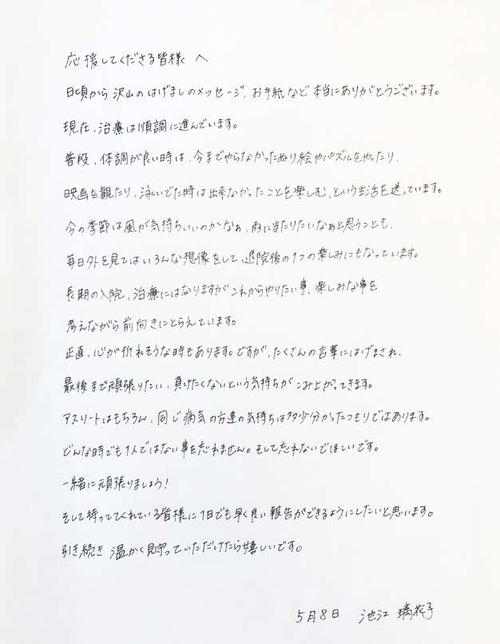 応援してくださる皆様へ
日頃から沢山のはげましのメッセージ、お手紙など本当にありがとうございます。
現在、治療は順調に進んでいます。
普段、体調が良い時は、今までやらなかったぬり絵やパズルをやったり、
映画を観たり、泳いでた時は出来なかったことを楽しむ、という生活を送っています。
今の季節は風が気持ちいいのかなぁ、雨に当たりたいなぁと思うことも、
毎日外を見てはいろんな想像をして退院後の1つの楽しみにもなっています。
長期の入院、治療にはなりますがこれからやりたい事、楽しみな事を
考えながら前向きにとらえています。
正直、心が折れそうな時もあります。ですが、たくさんの言葉にはげまされ、
最後まで頑張りたい、負けたくないという気持ちがこみ上がってきます。
アスリートはもちろん、同じ病気の方達の気持ちは多少分かったつもりではあります。
どんな時でも1人ではない事を忘れません。そして忘れないでほしいです。
一緒に頑張りましょう!
そして待っててくれている皆様に1日でも早く良い報告ができるようにしたいと思います。
引き続き温かく見守っていただけたら嬉しいです。
5月8日 池江 璃花子